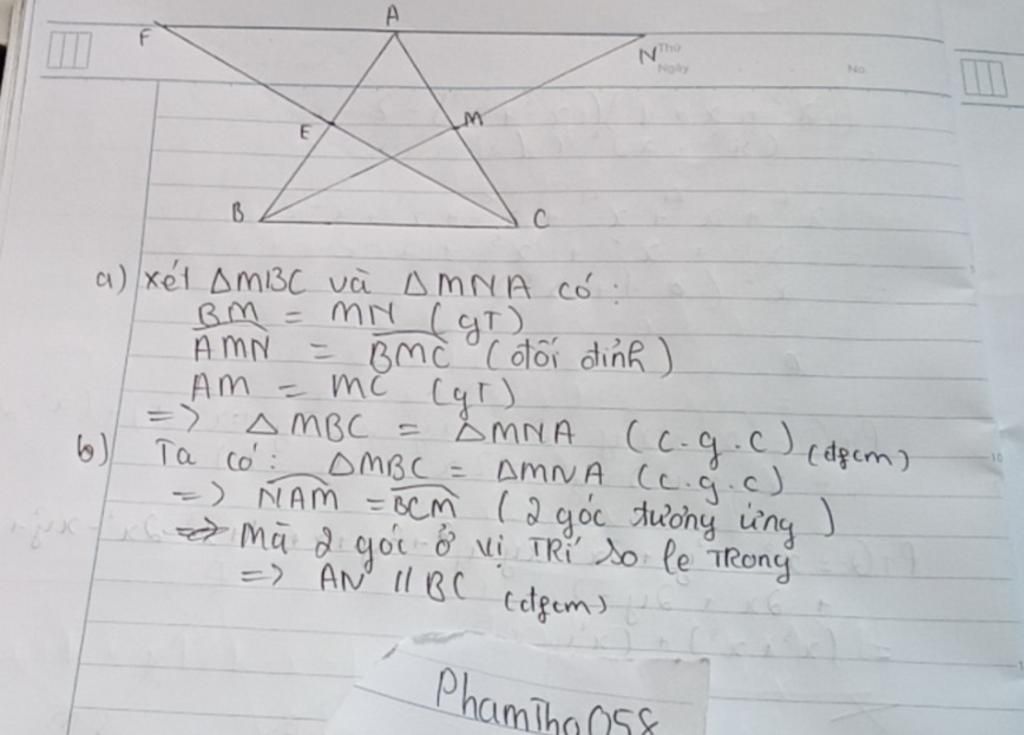 A
F
N
Thứ
Ngày
No.
E
M
B
C
a) xét ΔMBC và ΔMNA có:
BM = MN (gT)
AMN = BMC (đối đỉnh)
AM = MC (gT)
=> ΔMBC = ΔMNA (c.g.c) (đpcm)
b) Ta có: ΔMBC = ΔMNA (c.g.c)
=> NAM = BCM (2 góc tương ứng)
=> Mà 2 góc ở vị TRí so le TRong
=> AN // BC (đpcm)
PhamTha058